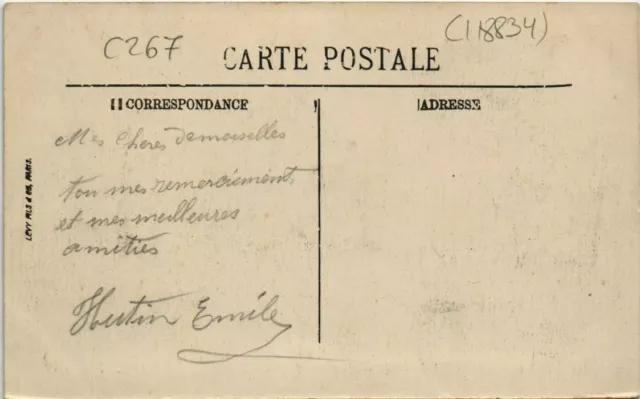 C267
(118834)
CARTE POSTALE
CORRESPONDANCE
ADRESSE
LÉVY FILS & Cie, PARIS.
Mes Cheres Demoiselles
tou mes remerciement
et mes meilleures
amitiés
Hutin Emile